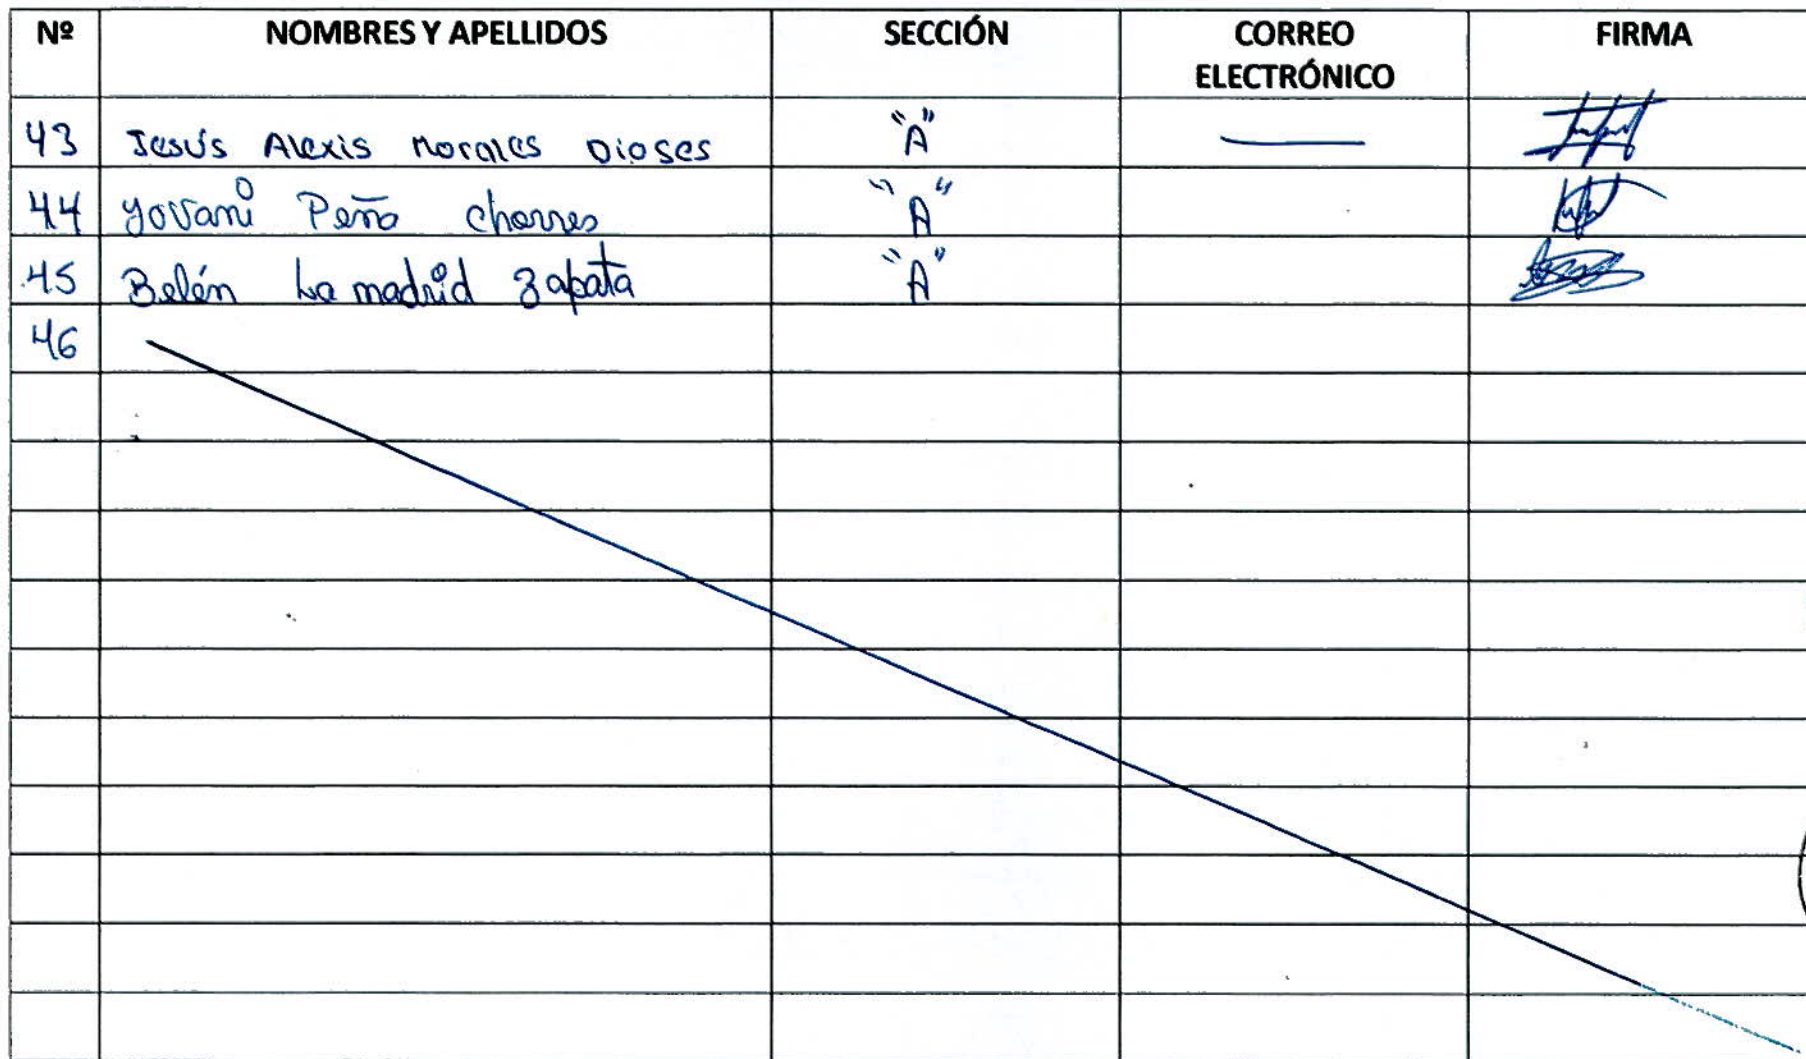 Nº NOMBRES Y APELLIDOS SECCIÓN CORREO ELECTRÓNICO FIRMA
43 Jesús Alexis Morales Dioses "A" —
44 Yovani Peña Charres "A"
45 Belén La madrid Zapata "A"
46